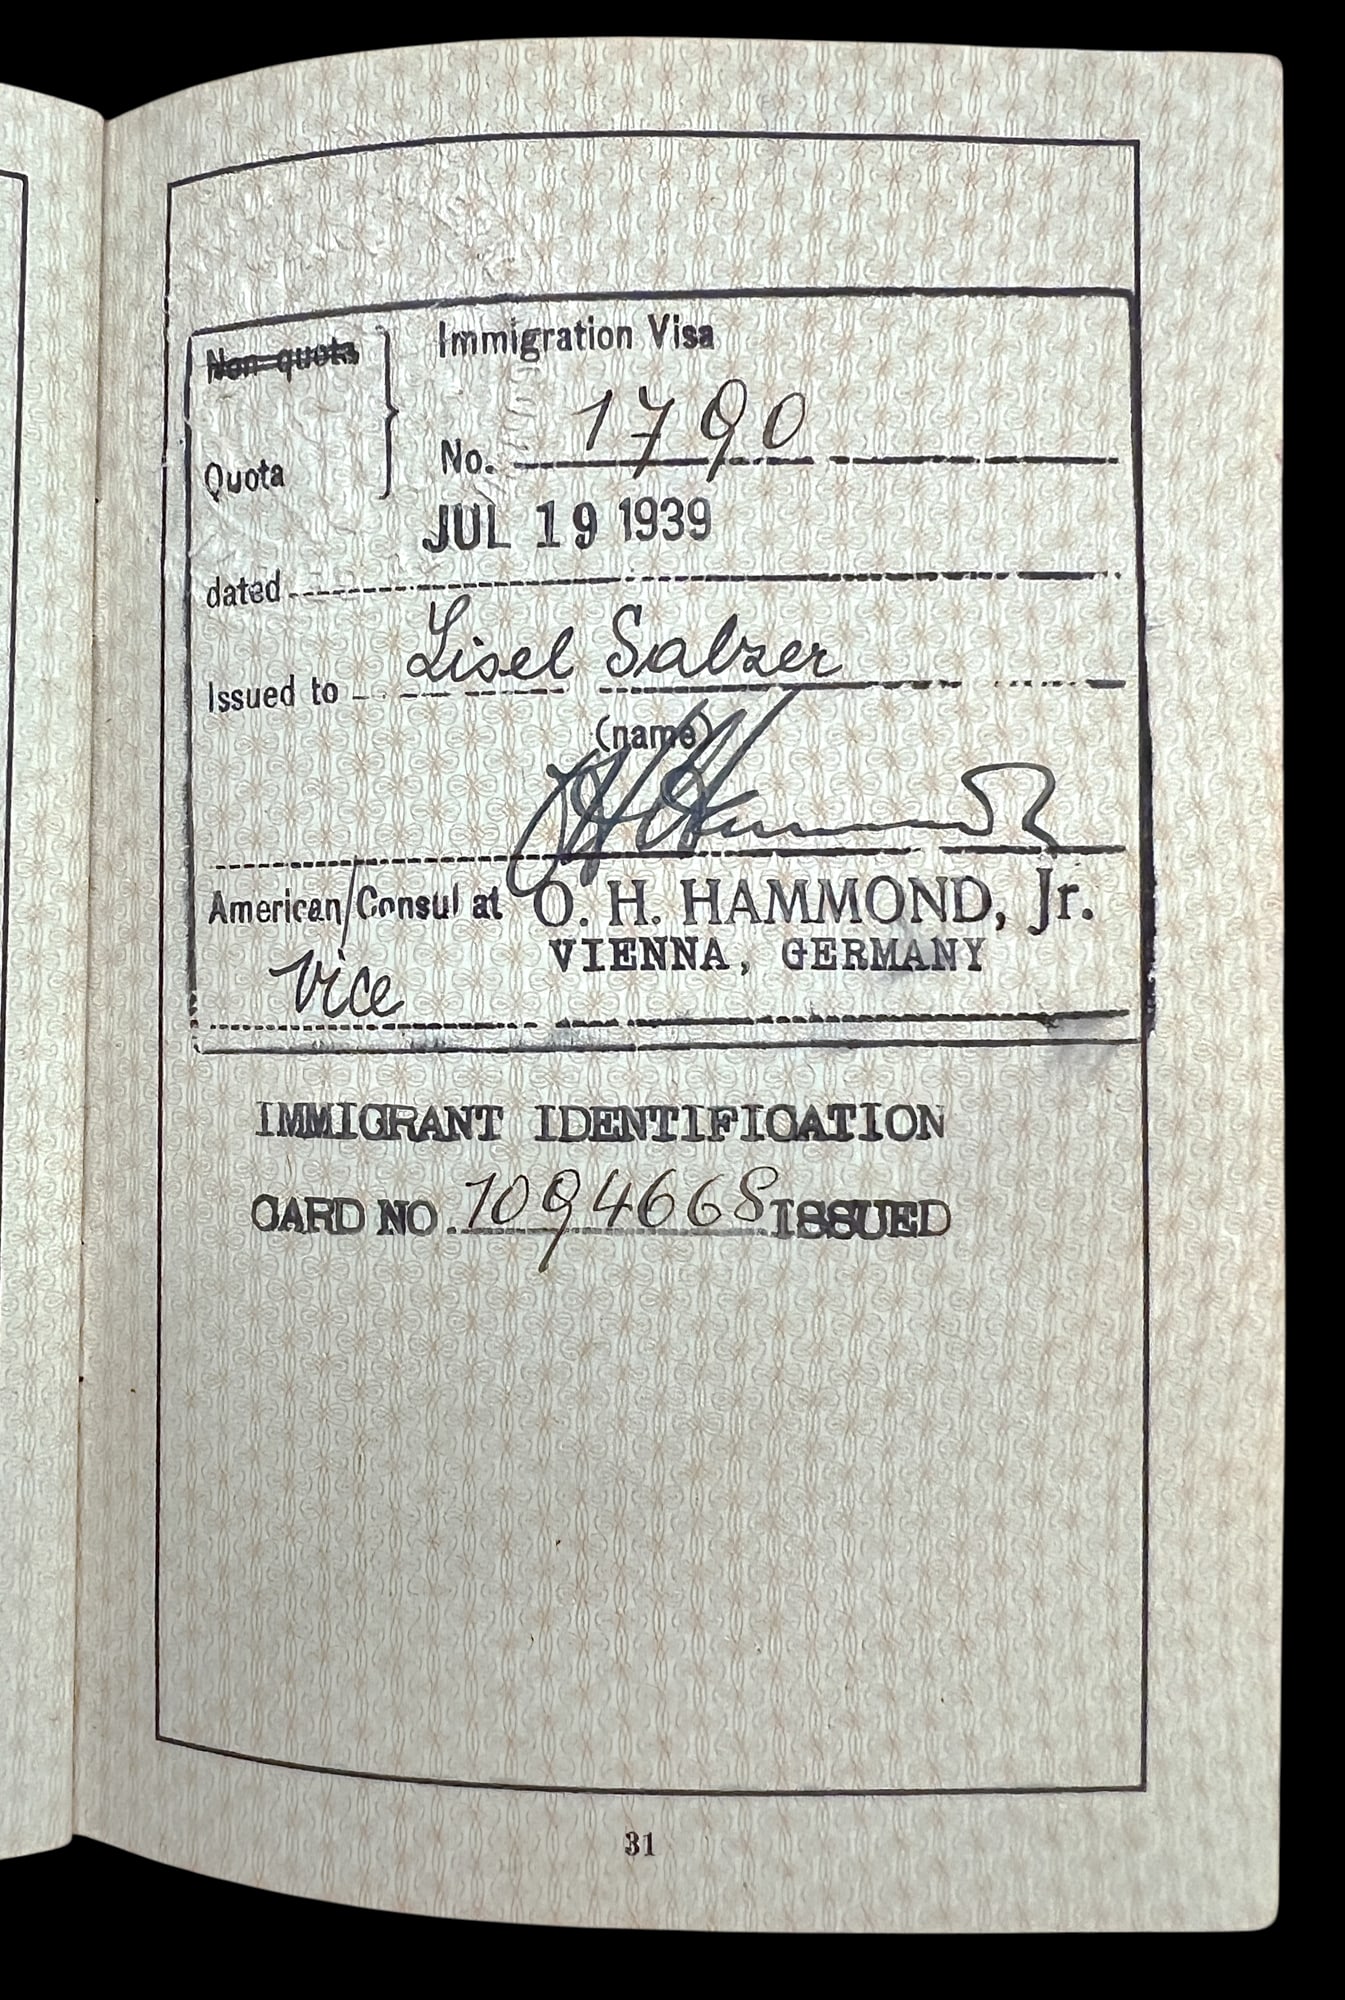 Immigration Visa
Non-quota
No. 1790
Quota
JUL 19 1939
dated
Lisel Salzer
Issued to
(name)
American/Consul at O. H. HAMMOND, Jr.
VIENNA, GERMANY
Vice
IMMIGRANT IDENTIFICATION
CARD NO. 1094668 ISSUED
31